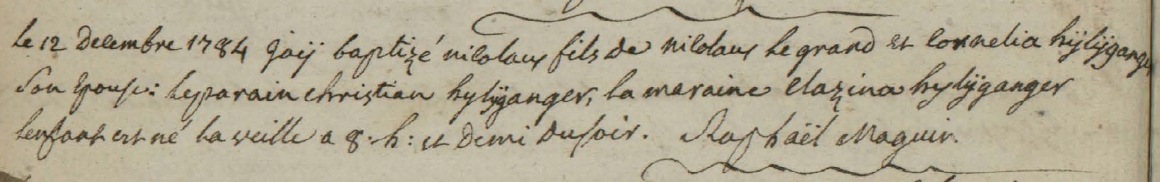 le 12 Decembre 1784 jaÿ baptizé nicolaus fils de nicolaus le grand et Cornelia hÿlÿganger
Son Epouse: le parain christian hylÿganger, la maraine Clazina hylÿganger
lenfant est né la veille a 8. h: et Demi du soir. Raphaël Maguir.